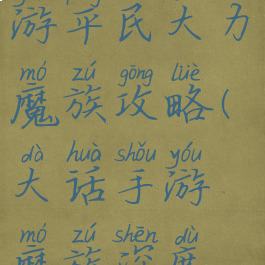 游平民大力
mó zú gōng lüè
魔族攻略(
dà huà shǒu yóu
大话手游
mó zú shēn dù
魔族深度